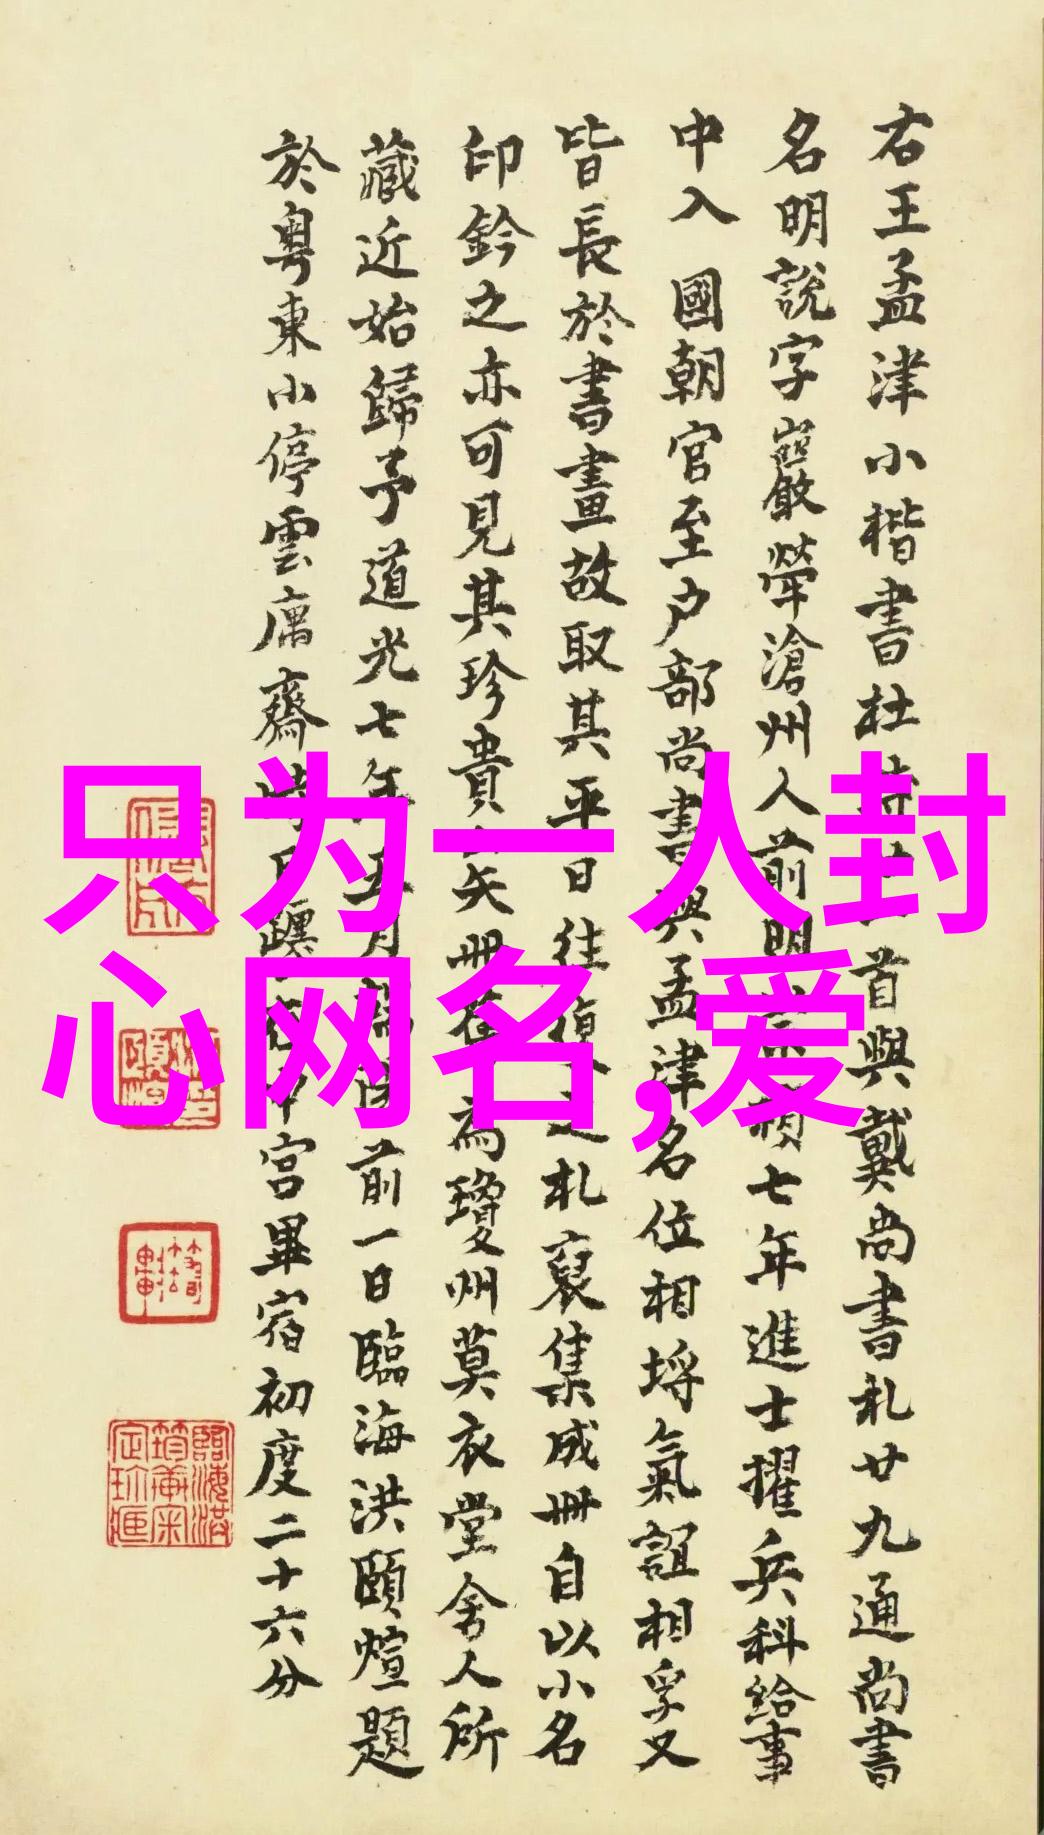 右王孟津小楷書杜首與戴尚書札廿九通尚書
名明說字巖犖滄州人前明七年進士擢兵科給事
中入國朝官至户部尚書與孟津名位相埒氣誼相孚又
皆長於書畫故取其平日往復之札裒集成冊自以小名
印鈐之亦可見其珍貴矣冊為瓊州莫衣堂舍人所
藏近始歸予道光七年五月前一日臨海洪頤煊題
於粵東小停雲庽齋宮畢宿初度二十六分
只为一人封
心网名,爱